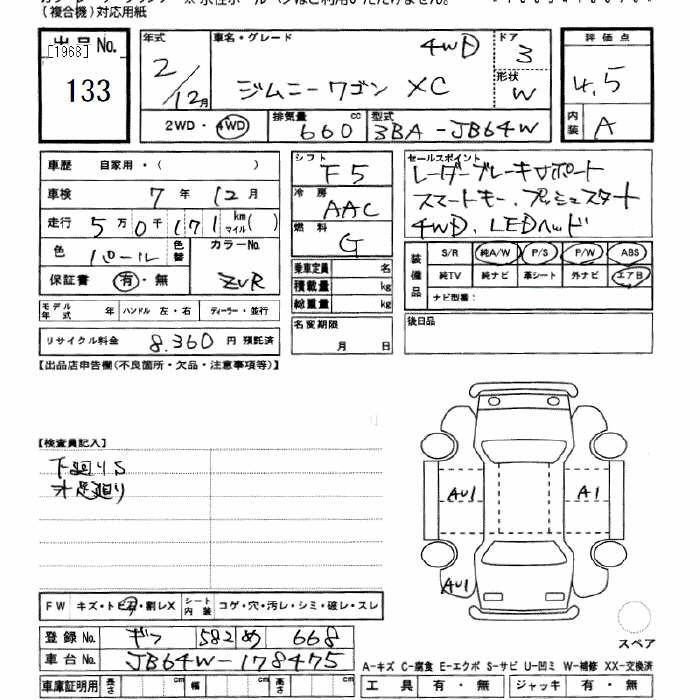 (複合機)対応用紙
出品No.
[1968]
133
年式
2/12月
車名・グレード
4WD
ジムニーワゴン XC
ドア
3
形状
W
評価点
4.5
内装
A
2WD・4WD
排気量
660 cc
型式
3BA-JB64W
車歴 自家用・( )
車検 7年 12月
走行 5万0千171 km マイル( )
色 パール 色替
カラーNo.
ZVR
保証書 有・無
モデル年式 年 ハンドル 左・右 ディーラー・並行
リサイクル料金 8,360 円 預託済
シフト
F5
冷房
AAC
燃料
G
乗車定員 名
積載量 kg
総重量 kg
名変期限
月 日
セールスポイント
レーダーブレーキサポート
スマートキー、プッシュスタート
4WD、LEDヘッド
装備品
S/R 純A/W P/S P/W ABS
純TV 純ナビ 革シート 外ナビ エアB
ナビ型番:
後日品
【出品店申告欄(不良箇所・欠品・注意事項等)】
【検査員記入】
下廻りS
足廻り
AU1
A1
AU1
スペア
FW キズ・トビ石・割レX
シート内装 コゲ・穴・汚レ・シミ・破レ・スレ
登録No. ギフ 582 め 668
車台No. JB64W-178475
車庫証明用 長さ cm 幅 cm 高さ cm
A-キズ C-腐食 E-エクボ S-サビ U-凹ミ W-補修 XX-交換済
工具 有・無 ジャッキ 有・無